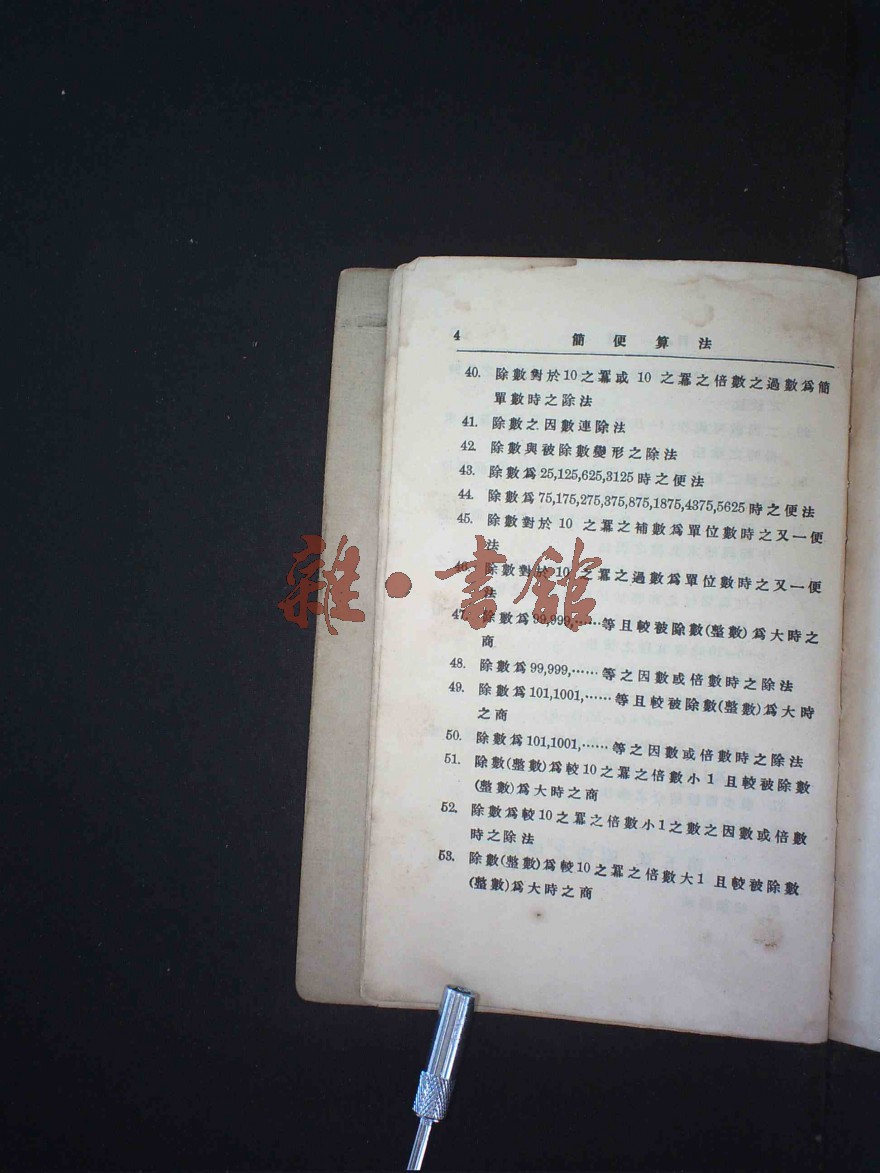 4 簡便算法
40. 除數對於10之冪或 10 之冪之倍數之過數爲簡
單數時之除法
41. 除數之因數連除法
42. 除數與被除數變形之除法
43. 除數爲25,125,625,3125時之便法
44. 除數爲75,175,275,375,875,1875,4375,5625時之便法
45. 除數對於 10 之冪之補數爲單位數時之又一便
法
46. 除數對於10之冪之過數爲單位數時之又一便
法
47. 除數爲99,999,……等且較被除數(整數)爲大時之
商
48. 除數爲99,999,……等之因數或倍數時之除法
49. 除數爲101,1001,……等且較被除數(整數)爲大時
之商
50. 除數爲101,1001,……等之因數或倍數時之除法
51. 除數(整數)爲較10之冪之倍數小1 且較被除數
(整數)爲大時之商
52. 除數爲較10之冪之倍數小1之數之因數或倍數
時之除法
53. 除數(整數)爲較10之冪之倍數大1 且較被除數
(整數)爲大時之商
雜·書館